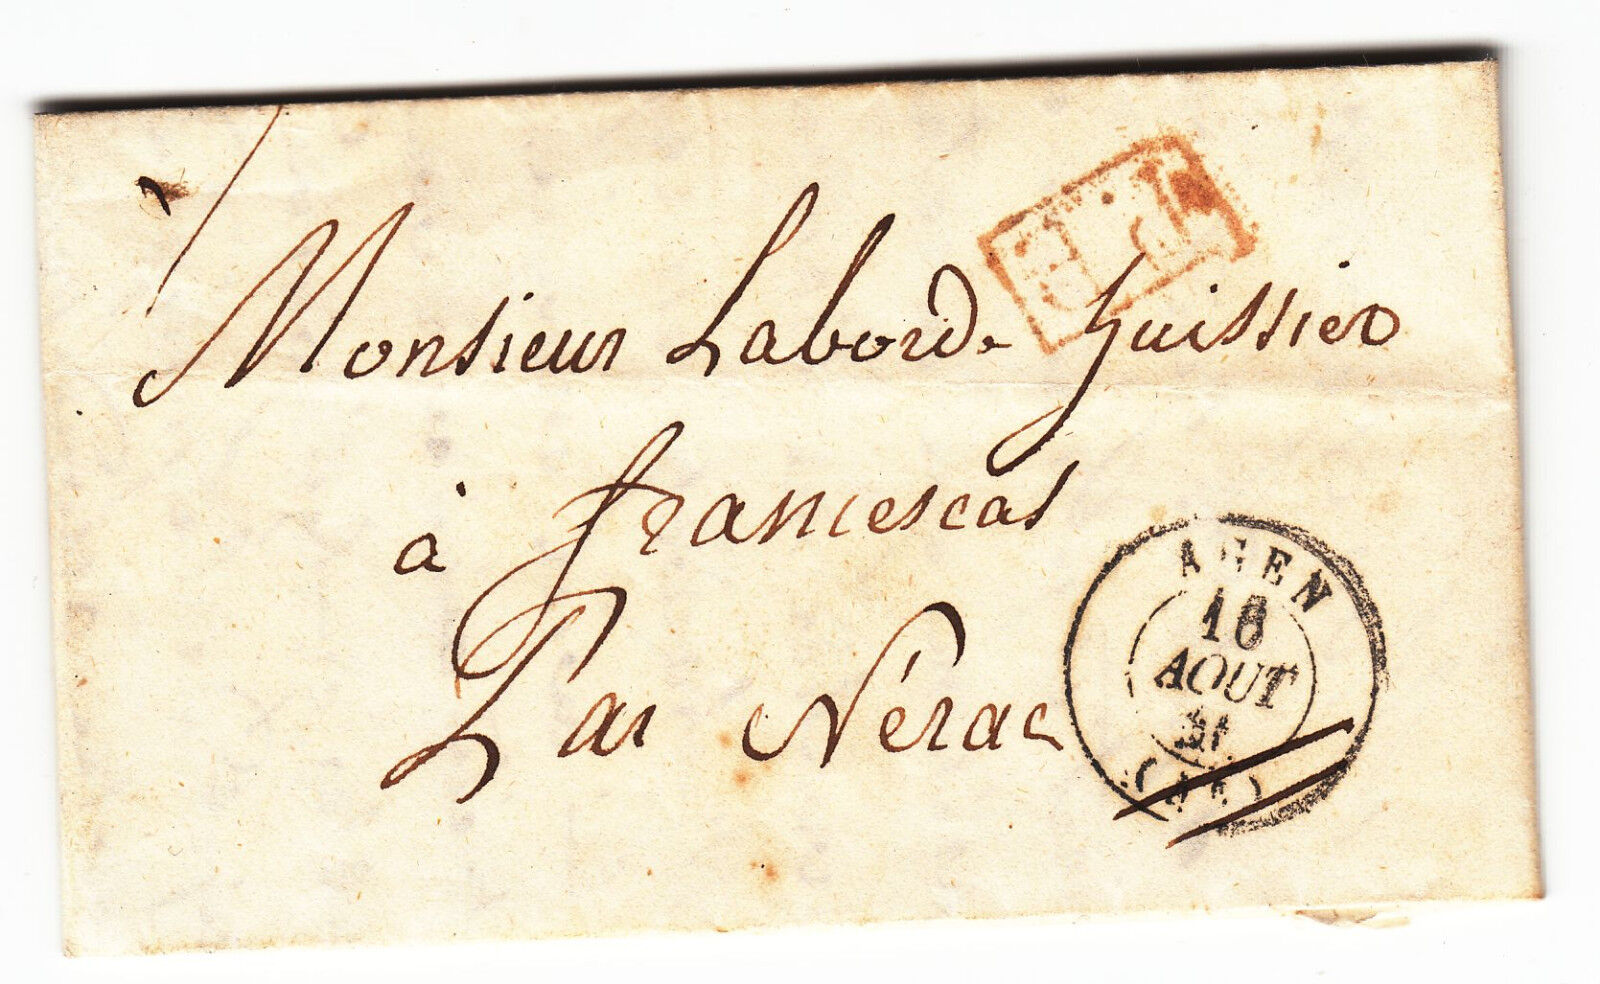 P.P.
Monsieur Laborde huissier
à francescas
Par Nérac
AGEN
AOUT